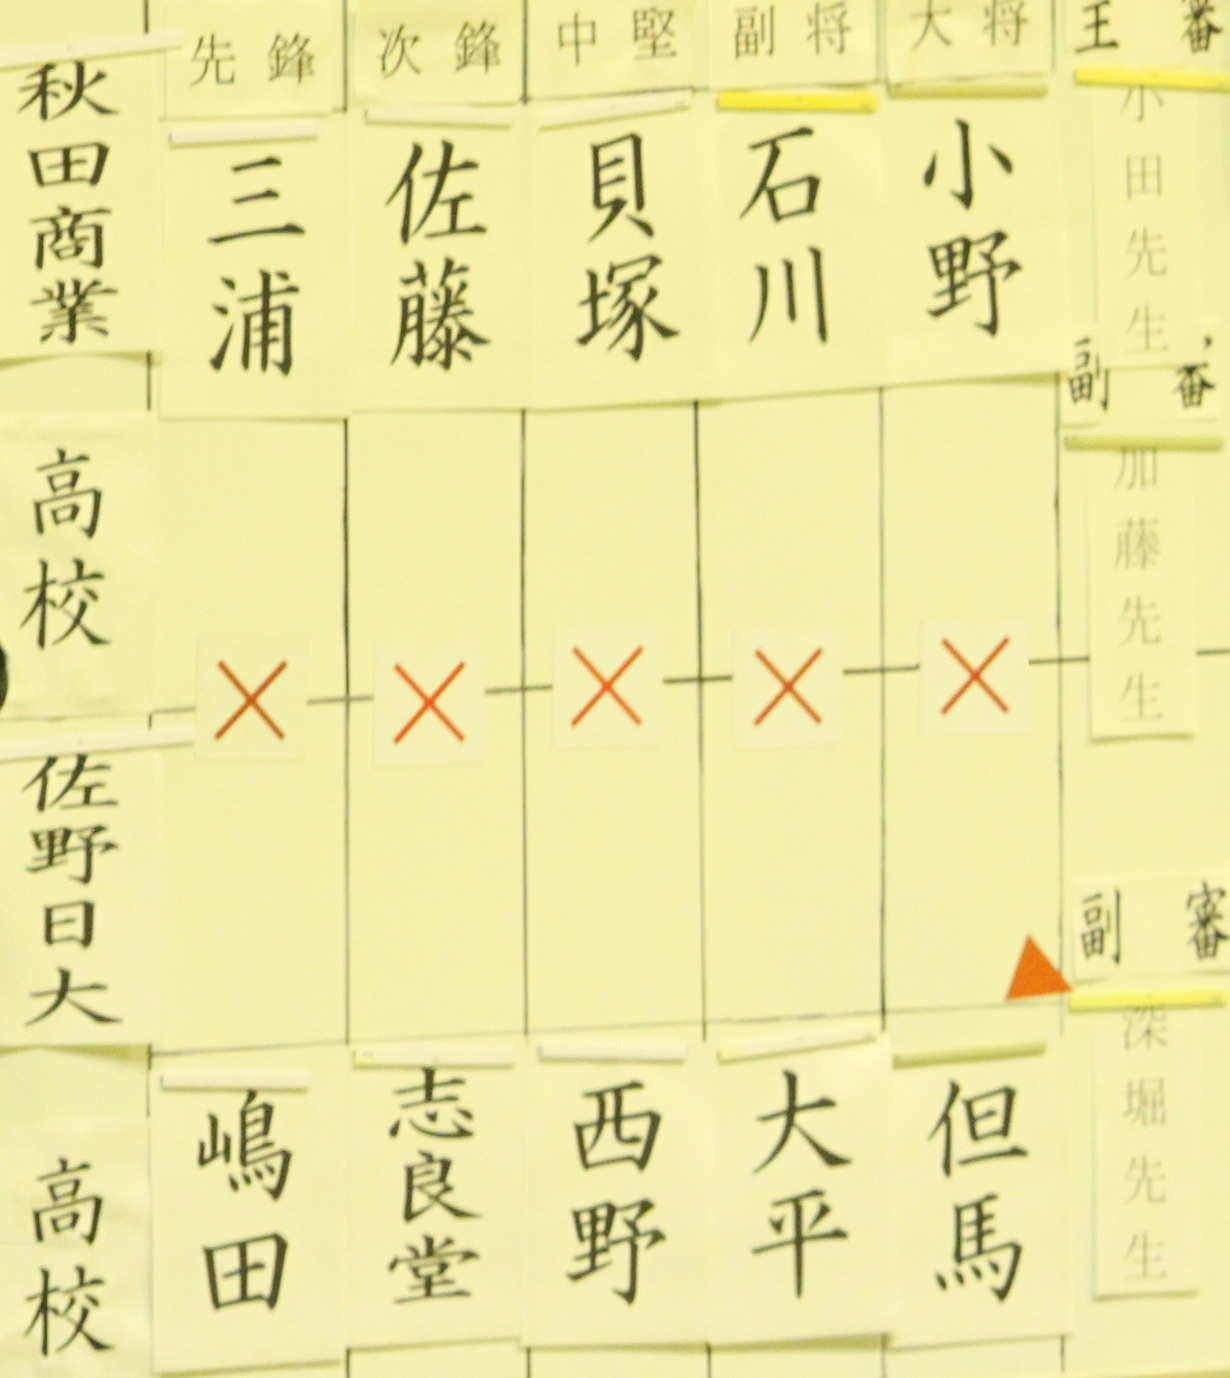 先鋒
次鋒
中堅
副将
大将
主審
秋田商業
高校
三浦
佐藤
貝塚
石川
小野
小田先生
副審
加藤先生
佐野日大
高校
嶋田
志良堂
西野
大平
但馬
副審
深堀先生